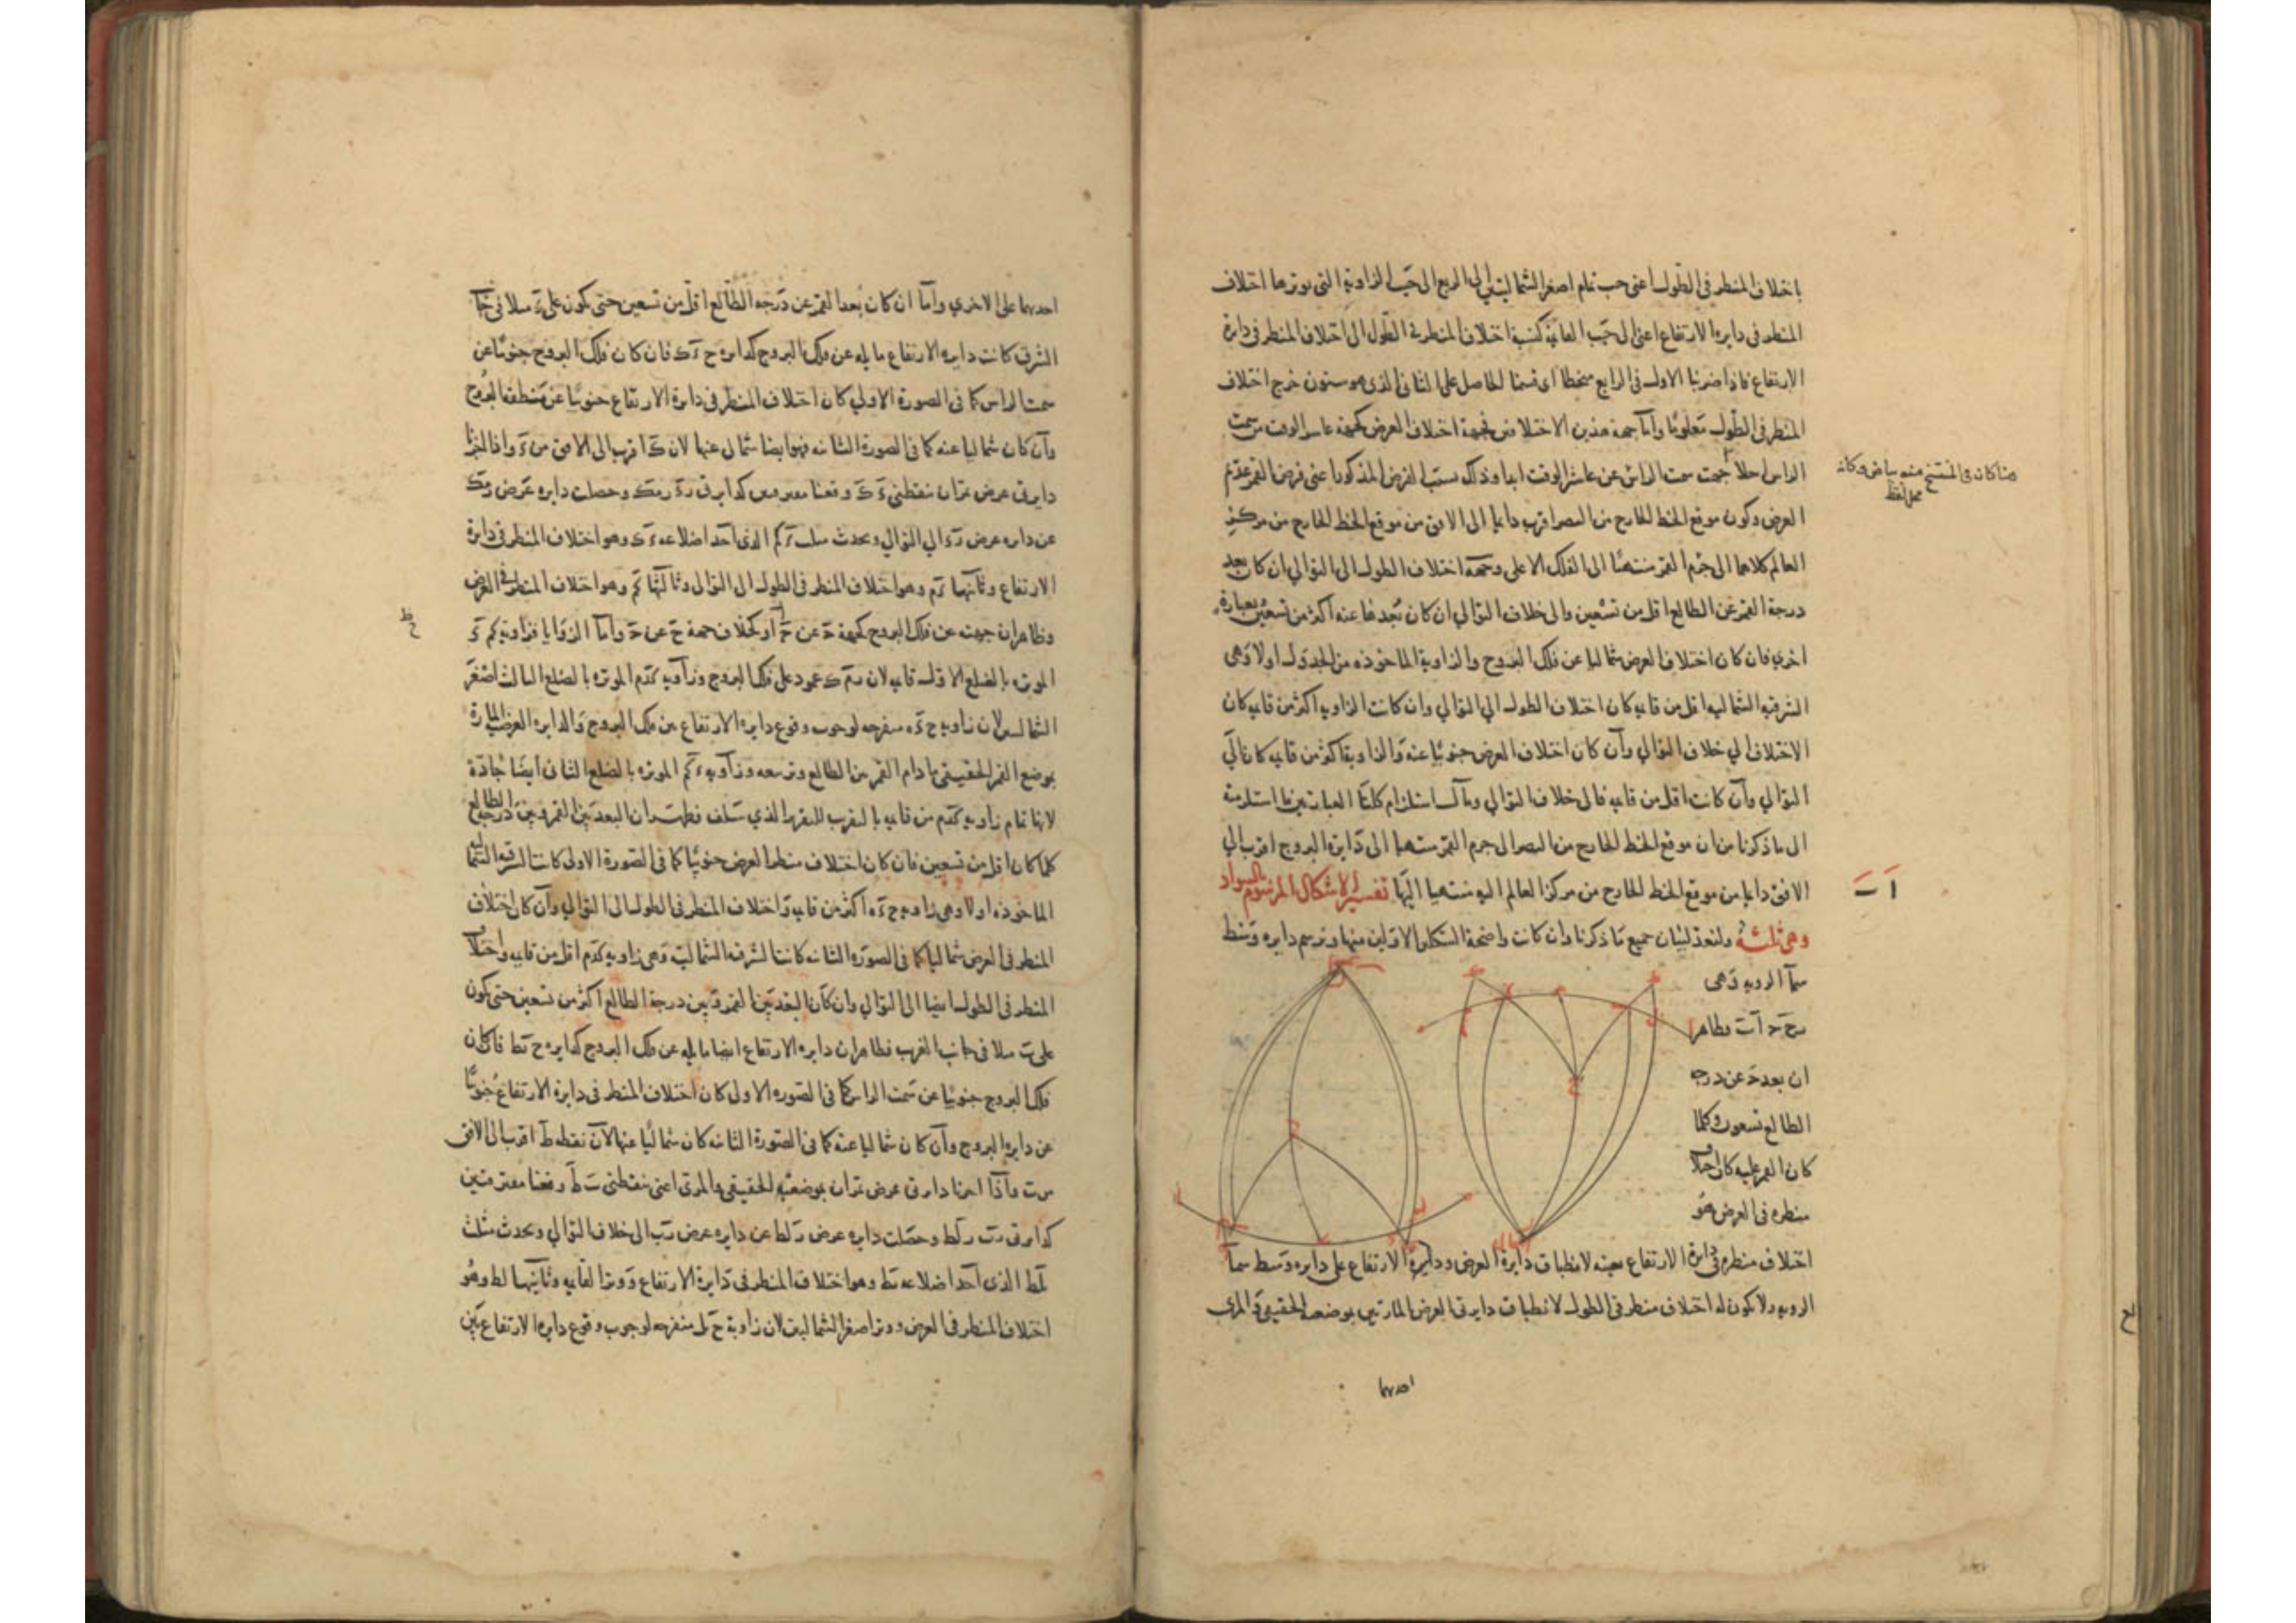 باختلاف المنظر في الطول اعني جيب تمام اصغر الشماليتين الى الربع الى جيب الزاوية التي يوترها اختلاف
المنظر في دايرة الارتفاع اعني الى جيب القايمة كنسبة اختلاف المنظر في الطول الى اختلاف المنظر في دايرة
الارتفاع فاذا ضربنا الاول في الرابع منحطا اي قسمنا الحاصل على الثاني الذي هو ستون خرج اختلاف
المنظر في الطول معلوما واما جهة هذين الاختلافين فجهة اختلاف العرض كجهة عاشر الوقت من سمت
الراس جهت سمت الراس عن عاشر الوقت ابدا وذلك بسبب الفرض المذكور اعني فرض القمر عديم
هنا كان في المنتسخ منه بياض وكانه محل لفظ
العرض وكون موقع الخط الخارج من البصر اقرب دايما الى الافق من موقع الخط الخارج من مركز
العالم كلاهما الى جرم القمر منتهيا الى الفلك الاعلى وجهة اختلاف الطول الى التوالي ان كان بعد
درجة القمر عن الطالع اقل من تسعين والى خلاف التوالي ان كان بعدها عنه اكثر من تسعين بعبارة
اخري فان كان اختلاف العرض شماليا عن فلك البروج والزاوية الماخوذة من الجدول اولا وهي
الشرقية الشمالية اقل من قايمة كان اختلاف الطول الي التوالي وان كانت الزاوية اكثر من قايمة كان
الاختلاف الي خلاف التوالي وان كان اختلاف العرض جنوبيا عنه والزاوية اكثر من قايمة كان الي
التوالي وان كانت اقل من قايمة فالى خلاف التوالي ومآل استلزام كلتا العبارتين ما استلزمته
الى ما ذكرنا من ان موقع الخط الخارج من البصر الى جرم القمر منتهيا الى دايرة البروج اقرب الي
الافق دايما من موقع الخط الخارج من مركز العالم اليه منتهيا اليها تفسير الاشكال المرسوم بالسواد
ا ب
وهي ثلثة ولنعد لبيان جميع ما ذكرنا وان كانت واضحة الشكلين الاولين منها ونرسم دايرة وسط
سما الروية وهي
فظاهر
ان بعد ح عن درجة
الطالع تسعون وكلما
كان القمر عليه كان اختلاف
منظره في العرض هو
اختلاف منظره في دايرة الارتفاع بعينه لانطباق دايرة العرض ودايرة الارتفاع على دايرة وسط سما
الروية ولا يكون له اختلاف منظر في الطول لانطباق دايرتي العرض المارتين بموضعه الحقيقي والمرئ
احديهما
احديهما على الاخري واما ان كان بعد القمر عن درجة الطالع اقل من تسعين حتى يكون على ء مثلا في جانب
الشرق كانت دايرة الارتفاع مايلة عن فلك البروج كدايرة ح ء ك فان كان فلك البروج جنوبيا عن
سمت الراس كما في الصورة الاولي كان اختلاف المنظر في دايرة الارتفاع جنوبيا عن منطقة البروج
وان كان شماليا عنه كما في الصورة الثانية فهو ايضا شمالي عنها لان ك اقرب الى الافق من ء واذا اجزنا
دايرتي عرض تمران بنقطتي ء ك وقعتا كدايرتي وحصلت دايرة عرض
عن دايرة عرض الي التوالي ويحدث مثلث ء ك م الذي احد اضلاعه ء ك وهو اختلاف المنظر في دايرة
الارتفاع وثانيها ء م وهو اختلاف المنظر في الطول الى التوالى وثالثها ك م وهو اختلاف المنظر في العرض
وظاهر ان جهته عن فلك البروج كجهة او كخلاف جهة ح عن واما الزوايا فزاوية ك م ء
الموترة بالضلع الاول قايمة لان عمود على فلك البروج وزاوية ك ء م الموترة بالضلع الثالث اصغر
الشماليتين لان زاوية ح ء ه منفرجة لوجوب وقوع دايرة الارتفاع بين فلك البروج والدايرة العرضية المارة
بموضع القمر الحقيقي ما دام القمر بين الطالع وتسعه وزاوية ء ك م الموترة بالضلع الثاني ايضا حادة
لانها تمام زاوية ك ء م من قايمة بالتقريب للتقرير الذي سلف فظهر ان البعد بين القمر وبين درجة الطالع
كلما كان اقل من تسعين فان كان اختلاف منظر العرض جنوبيا كما في الصورة الاولى كانت الشرقية الشمالية
الماخوذة اولا وهي زاوية ح ء ه اكثر من قايمة واختلاف المنظر في الطول الى التوالي وان كان اختلاف
المنظر في العرض شماليا كما في الصورة الثانية كانت الشرقية الشمالية وهي زاوية ك ء م اقل من قايمة واختلاف
المنظر في الطول ايضا الى التوالي وان كان البعد بين القمر وبين درجة الطالع اكثر من تسعين حتى يكون
على مثلا في جانب الغرب فظاهر ان دايرة الارتفاع ايضا مايلة عن فلك البروج كدايرة فان كان
فلك البروج جنوبيا عن سمت الراس كما في الصورة الاولى كان اختلاف المنظر في دايرة الارتفاع جنوبيا
عن دايرة البروج وان كان شماليا عنه كما في الصورة الثانية كان شماليا عنها لان نقطة ط اقرب الى الافق
من ت واذا اجزنا دايرتي عرض تمران بموضعيه الحقيقي والمرئي اعني نقطتي وقعتا مفترقتين
كدايرتي وحصلت دايرة عرض عن دايرة عرض الى خلاف التوالي ويحدث مثلث
الذي احد اضلاعه وهو اختلاف المنظر في دايرة الارتفاع ووتر القايمة وثانيها وهو
اختلاف المنظر في العرض ووتر اصغر الشماليتين لان زاوية منفرجة لوجوب وقوع دايرة الارتفاع بين